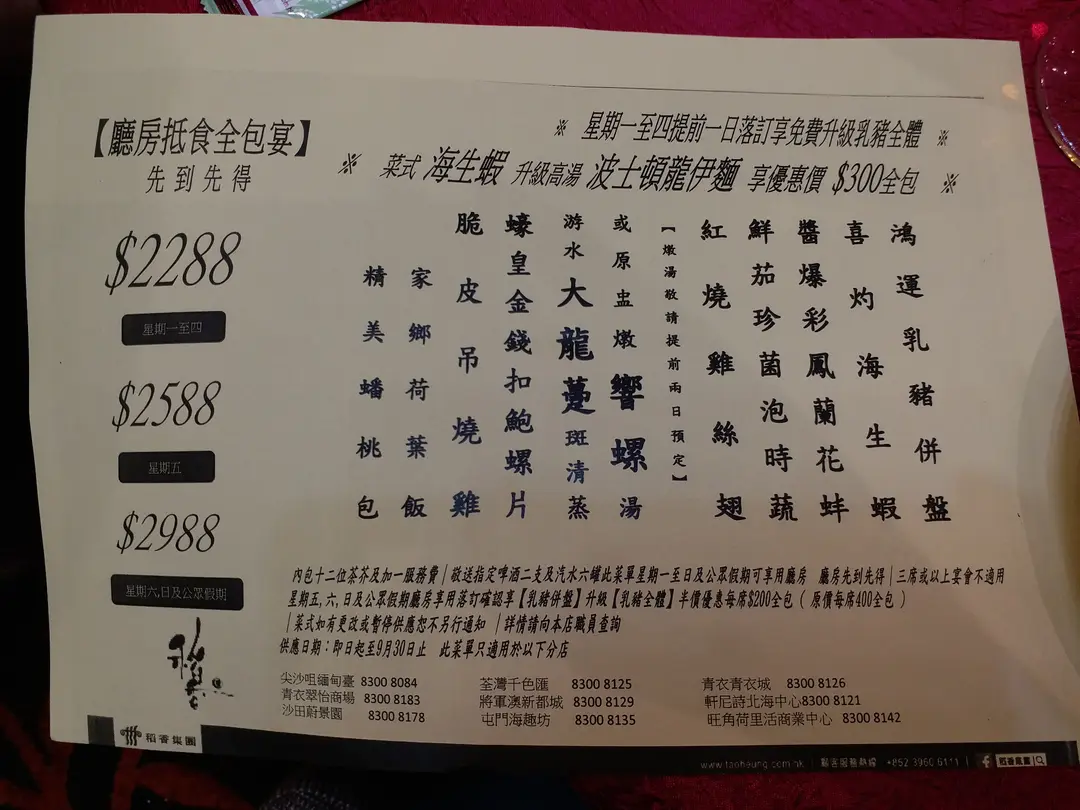 【廳房抵食全包宴】
先到先得
※ 星期一至四提前一日落訂享免費升級乳豬全體 ※
※ 菜式 海生蝦 升級高湯 波士頓龍伊麵 享優惠價 $300全包 ※
$2288
星期一至四
$2588
星期五
$2988
星期六,日及公眾假期
鴻運乳豬併盤
喜灼海生蝦
醬爆彩鳳蘭花蚌
鮮茄珍菌泡時蔬
紅燒雞絲翅
【燉湯敬請提前兩日預定】
或原盅燉響螺湯
游水大龍躉斑清蒸
蠔皇金錢扣鮑螺片
脆皮吊燒雞
家鄉荷葉飯
精美蟠桃包
內包十二位茶芥及加一服務費 | 敬送指定啤酒二支及汽水六罐此菜單星期一至日及公眾假期可享用廳房 廳房先到先得 | 三席或以上宴會不適用
星期五,六,日及公眾假期廳房享用落訂確認享【乳豬併盤】升級【乳豬全體】半價優惠每席$200全包 ( 原價每席400全包 )
| 菜式如有更改或暫停供應恕不另行通知 | 詳情請向本店職員查詢
供應日期:即日起至9月30日止 此菜單只適用於以下分店
尖沙咀緬甸臺 8300 8084
青衣翠怡商場 8300 8183
沙田蔚景園 8300 8178
荃灣千色匯 8300 8125
將軍澳新都城 8300 8129
屯門海趣坊 8300 8135
青衣青衣城 8300 8126
軒尼詩北海中心8300 8121
旺角荷里活商業中心 8300 8142
稻香集團
www.taoheung.com.hk | 顧客服務熱線 +852 3960 6111 | f 稻香集團